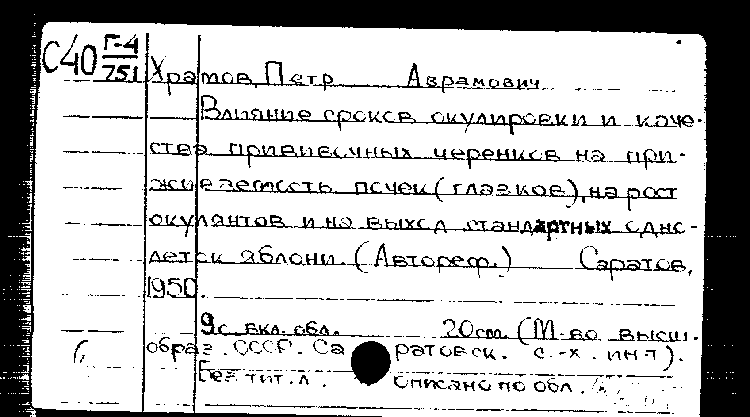 С40 Г-4/751
Храмов, Петр Аврамович
Влияние сроков окулировки и каче-
ства прививочных черенков на при-
живаемость почек (глазков), на рост
окулянтов и на выход стандартных одно-
леток яблони. (Автореф.) Саратов,
1950.
9с. вкл. обл. 20см. (М-во высш.
образ. СССР. Саратовск. с.-х. ин-т).
Без тит. л. Описано по обл.